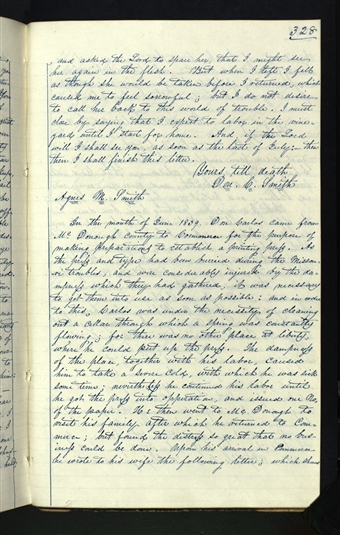 328
and asked the Lord to spare her, that I might see
her again in the flesh. But when I left I felt
as though she would be taken before I returned, which
caused me to feel sorrowful; but I do not desire
to call her back to this world of trouble. I must
close by saying that I expect to labor in the vine-
yard until I start for home. And if the Lord
will I shall see you, as soon as the last of July: then
then I shall finish this letter.
Yours, till death,
Don C. Smith
Agnes M. Smith
In the month of June 1839, Don Carlos came from
Mc Donough County to Commerce for the purpose of
making preparations to establish a printing press. As
the press and type had been buried during the Missou-
ri troubles, and were considerably injured by the da-
mpness which they had gathered, it was necessary
to get them into use as soon as possible: and in order
to this, Carlos was under the necessity of cleaning
out a cellar through which a spring was constantly
flowing; for there was no other place at liberty,
where he could put up the press. The dampness
of the place together with his labor, caused
him to take a severe cold, with which he was sick
some time; nevertheless he continued his labor until
he got the press into opperation, and issued one No.
of the paper. He then went to Mc. Donough to
visit his family, after which he returned to Com-
merce; but found the distress so great that no bus-
iness could be done. Upon his arrival in Commerce
he wrote to his wife the following letter; which shows